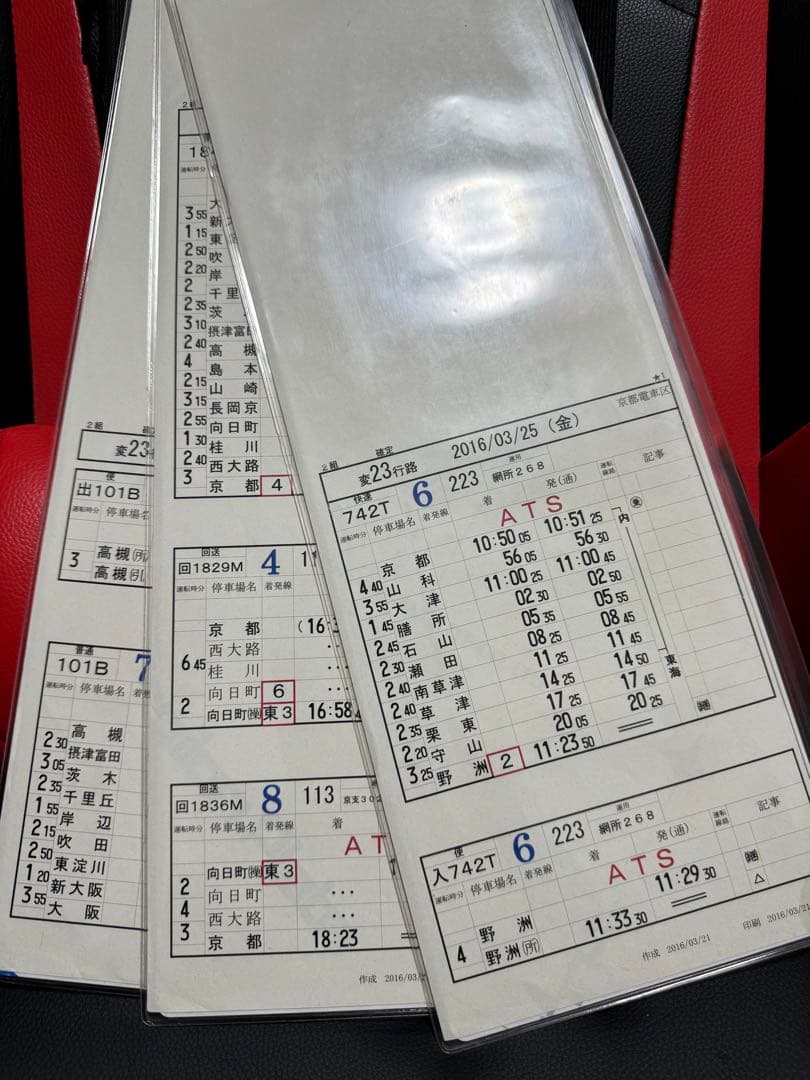 2組 確定
変23行路 2016/03/25 (金) 京都電車区
★1
快速
742T 6 223 運用 網所268
運転時分 停車場名 着発線 着 発(通) 運転線路 記事
ATS
京都 10:50 05 10:51 25
4 40 山科 56 05 56 30
3 55 大津 11:00 25 11:00 45
1 45 膳所 02 30 02 50
2 45 石山 05 35 05 55
2 30 瀬田 08 25 08 45
2 40 南草津 11 25 11 45
2 40 草津 14 25 14 50
2 35 栗東 17 25 17 45
2 20 守山 20 05 20 25
3 25 野洲 2 11:23 50
内
東海
便
入742T 6 223 運用 網所268
運転時分 停車場名 着発線 着 発(通) 運転線路 記事
ATS
野洲 11:29 30
4 野洲(所) 11:33 30
△
作成 2016/03/21 印刷 2016/03/21
2組
18
運転時分
大
3 55 新大
1 15 東
2 50 吹
2 20 岸
2 千里
2 35 茨
3 10 摂津富田
2 40 高槻
4 島本
2 15 山崎
3 15 長岡京
2 55 向日町
1 30 桂川
2 40 西大路
3 京都 4
回送
回1829M 4 11
運転時分 停車場名 着発線
京都 (16:
西大路 ...
6 45 桂川 ...
向日町 6 ...
2 向日町(操) 東3 16:58
回送
回1836M 8 113 京支302
運転時分 停車場名 着発線 着
AT
向日町(操) 東3
2 向日町 ...
4 西大路 ...
3 京都 18:23
作成 2016/03/2
2組 確
変23行
便
出101B
運転時分 停車場名
高槻(所)
3 高槻(引)
普通
101B 7
運転時分 停車場名 着発
高槻
2 30 摂津富田
3 05 茨木
2 35 千里丘
1 55 岸辺
2 15 吹田
2 50 東淀川
1 20 新大阪
3 55 大阪